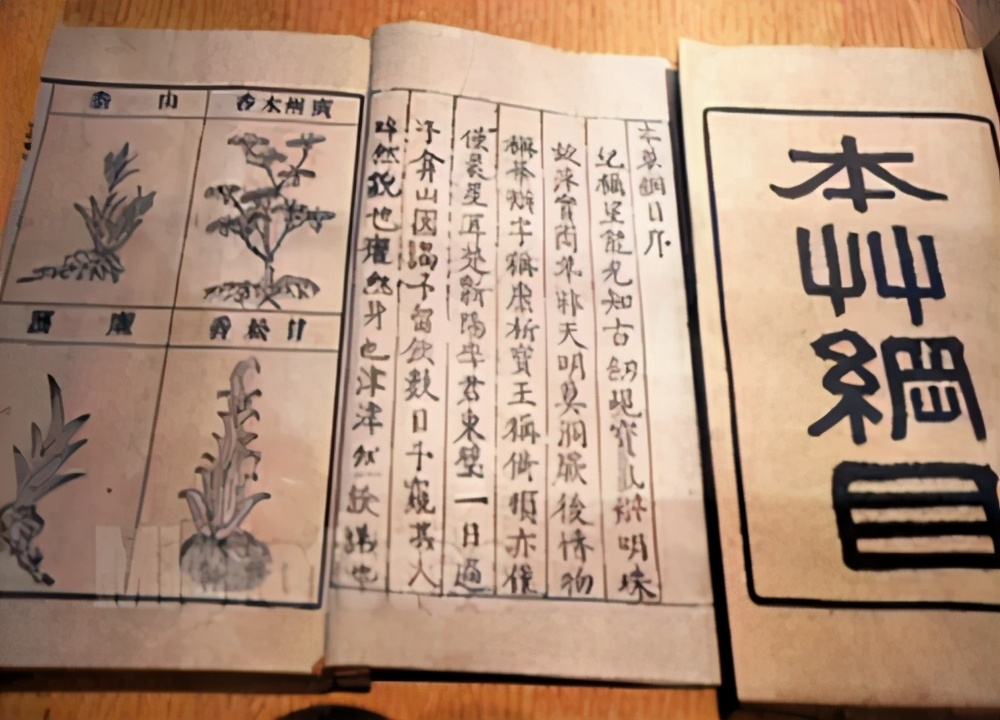 本艸綱目
本草綱目序
紀稱望龍光知古劍覘寶氣辨明珠
故萍實商羊非天明莫洞厥後博物
稱華辨字稱康析寶玉稱倚頓亦僅
僅晨星耳楚蘄陽李君東璧一日過
予弇山園謁予留飲數日予窺其人
睟然貌也癯然身也津津然譚議也
廣州木香
甘松香